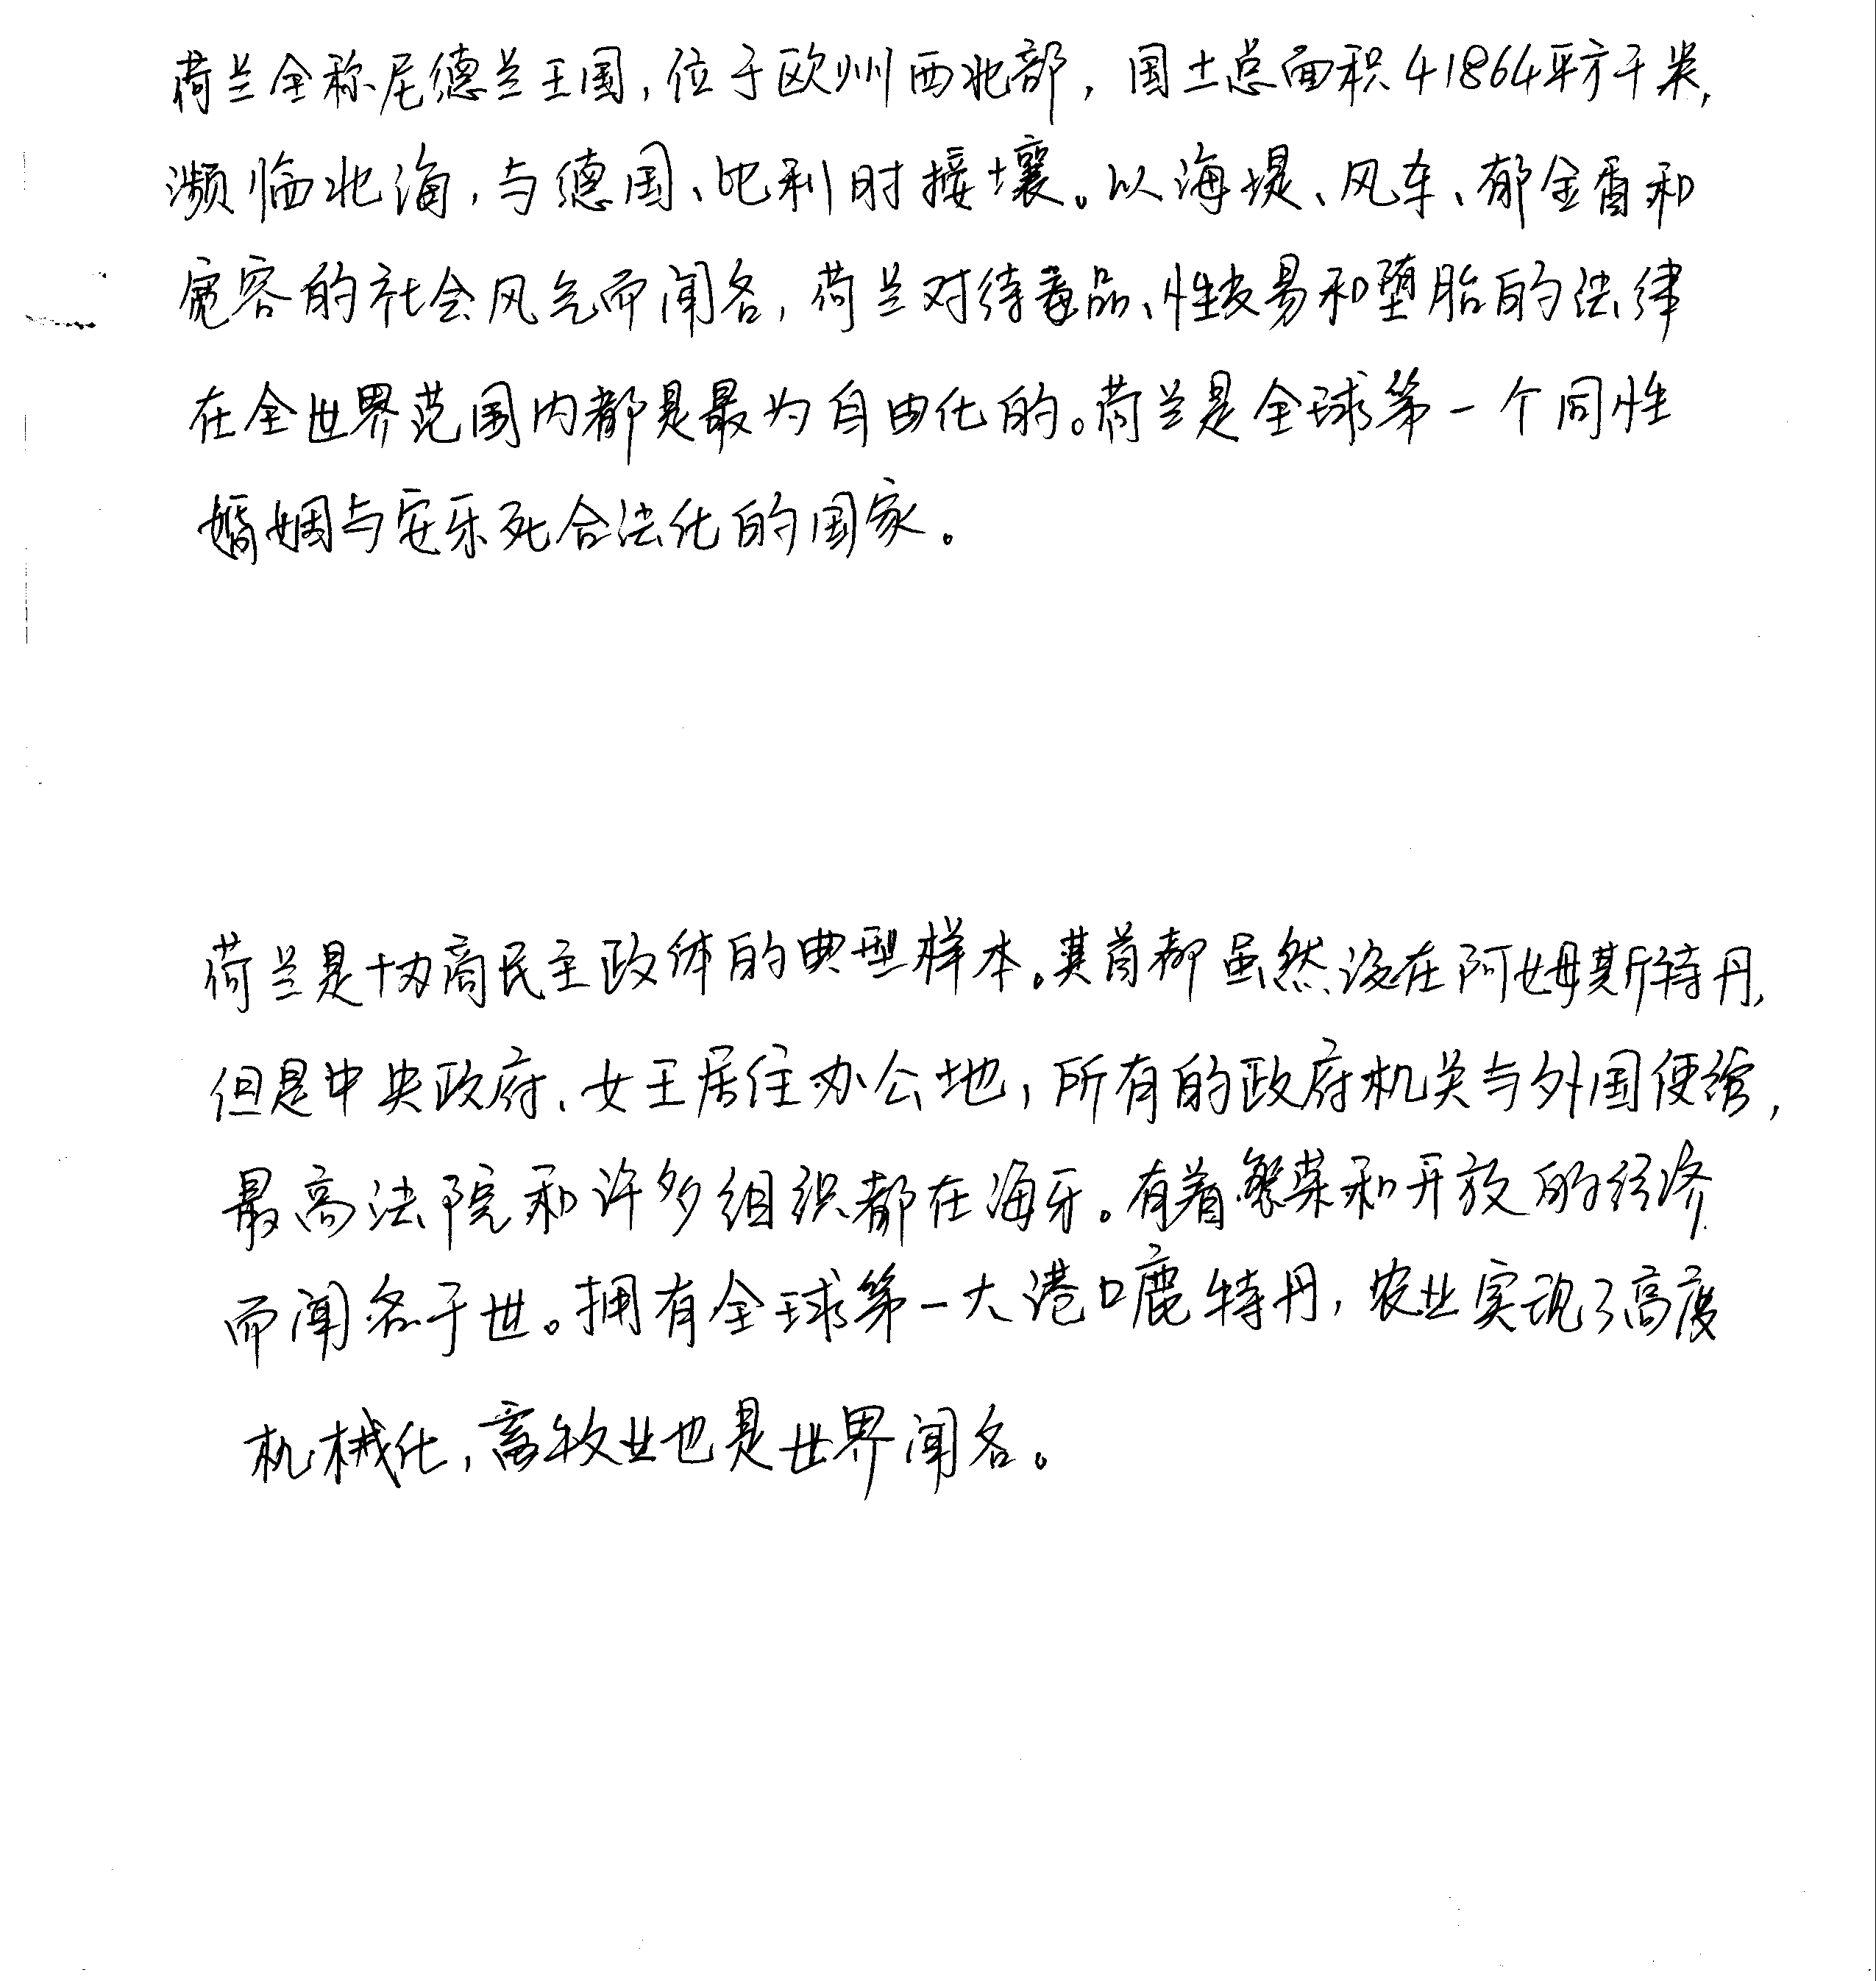 荷兰全称尼德兰王国,位于欧州西北部,国土总面积41864平方千米,
濒临北海,与德国、比利时接壤。以海堤、风车、郁金香和
宽容的社会风气而闻名,荷兰对待毒品、性交易和堕胎的法律
在全世界范围内都是最为自由化的。荷兰是全球第一个同性
婚姻与安乐死合法化的国家。
荷兰是协商民主政体的典型样本。其首都虽然设在阿姆斯特丹,
但是中央政府、女王居住办公地,所有的政府机关与外国使馆,
最高法院和许多组织都在海牙。有着繁荣和开放的经济
而闻名于世。拥有全球第一大港口鹿特丹,农业实现了高度
机械化,畜牧业也是世界闻名。